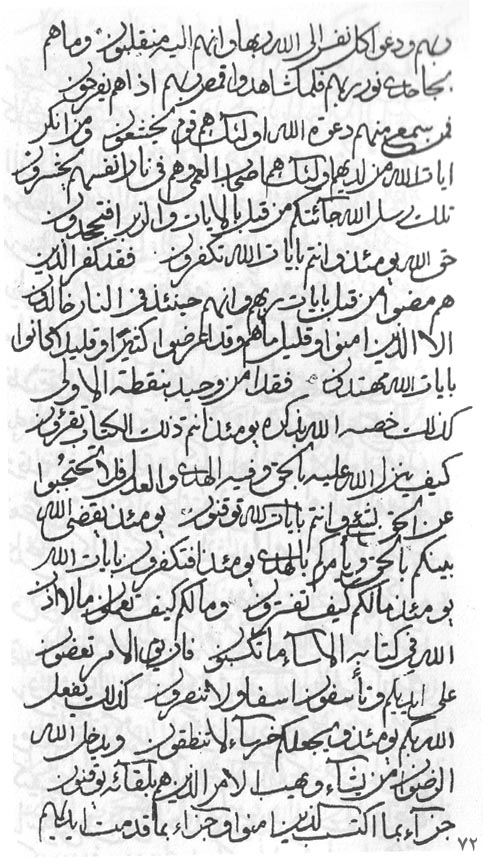 ربهم ودعوا كل نفس الى الله ربها وانهم اليه منقلبون وما هم
بجاحدى نور ربهم فلما شاهدوا قمص ربهم اذا هم يفرحون
فمن سمع منهم دعوة الله اولئك هم فى يخشعون ومن انكر
ايات الله من لديهم اولئك هم اصحاب العمى وهم فى نار انفسهم يخسرون
تلك رسل الله جائتكم من قبل بالايات والزبر افتجحدون
حق الله يومئذ وانتم بايات الله تكفرون فقد كفر الذين
هم مضوا من قبل بايات ربهم وانهم حينئذ فى النار خالدون
الا الذين امنوا وقليل ما هم وقد اعرضوا كثيرا وقليلا كانوا
بايات الله مهتدون فقد امن وحيد بنقطة الاولى
كذلك خصه الله بذكره يومئذ انتم ذلك الكتاب تقرؤن
كيف ينزل الله عليه بالحق وفيه الهدى والعدل فلا تحتجبوا
عن الحق بشئ وانتم بايات الله توقنون يومئذ يقضى الله
بينكم بالحق ويأمركم بالهدى يومئذ افتكفرون بايات الله
يومئذ ما لكم كيف تفترون وما لكم كيف تعملون ما لا اذن
الله فى كتابه الا ساء ما تكسبون فان يوم الامر تعضون
على ايديكم وتأسفون اسفا ولا تنصرون كذلك يفعل
الله بكم يومئذ ويجعلكم خرساء لا تنطقون ويدخل الله
الرضوان من يشاء ويهب الامر الذين هم بلقائه يوقنون
جزاء بما اكتسب الذين امنوا وجزاء بما قدمت ايديهم
٧٢